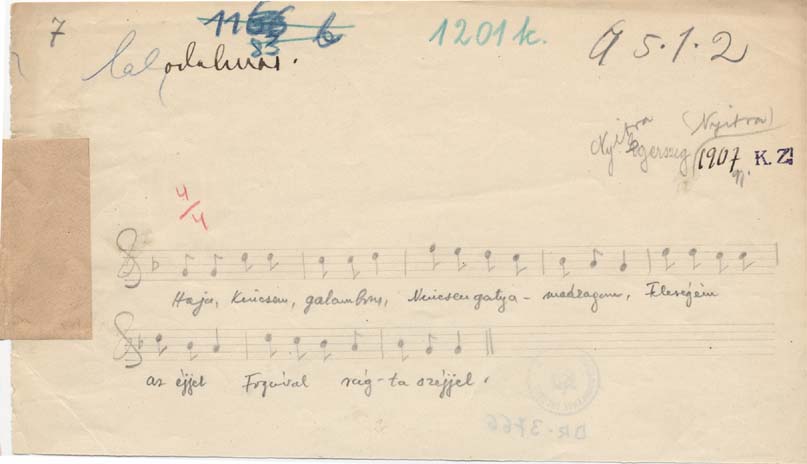 7
1166
83 b
1201 k.
A 5.1.2
Lakodalmas.
(Nyitra)
Nyitra
Egerszeg 1907 K. Z.
4/4
Haja, Kincsem, galambom, Nincsen gatya-madzagom, Feleségem
az éjjel Fogával rág-ta széjjel.
DR-3766